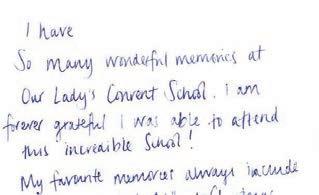 I have
So many wonderful memories at
Our Lady's Convent School. I am
forever grateful I was able to attend
this incredible School!
My favourite memories always include